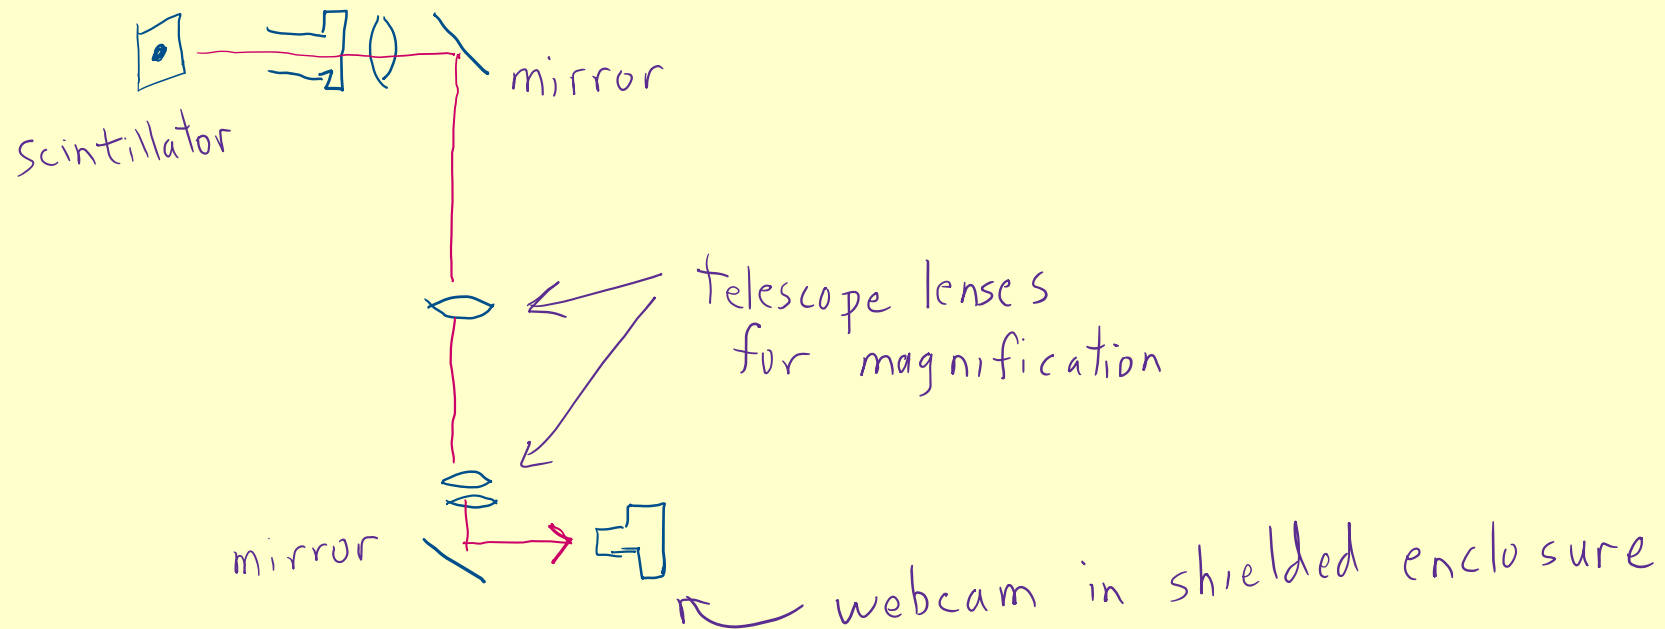 mirror
scintillator
telescope lenses
for magnification
mirror
webcam in shielded enclosure